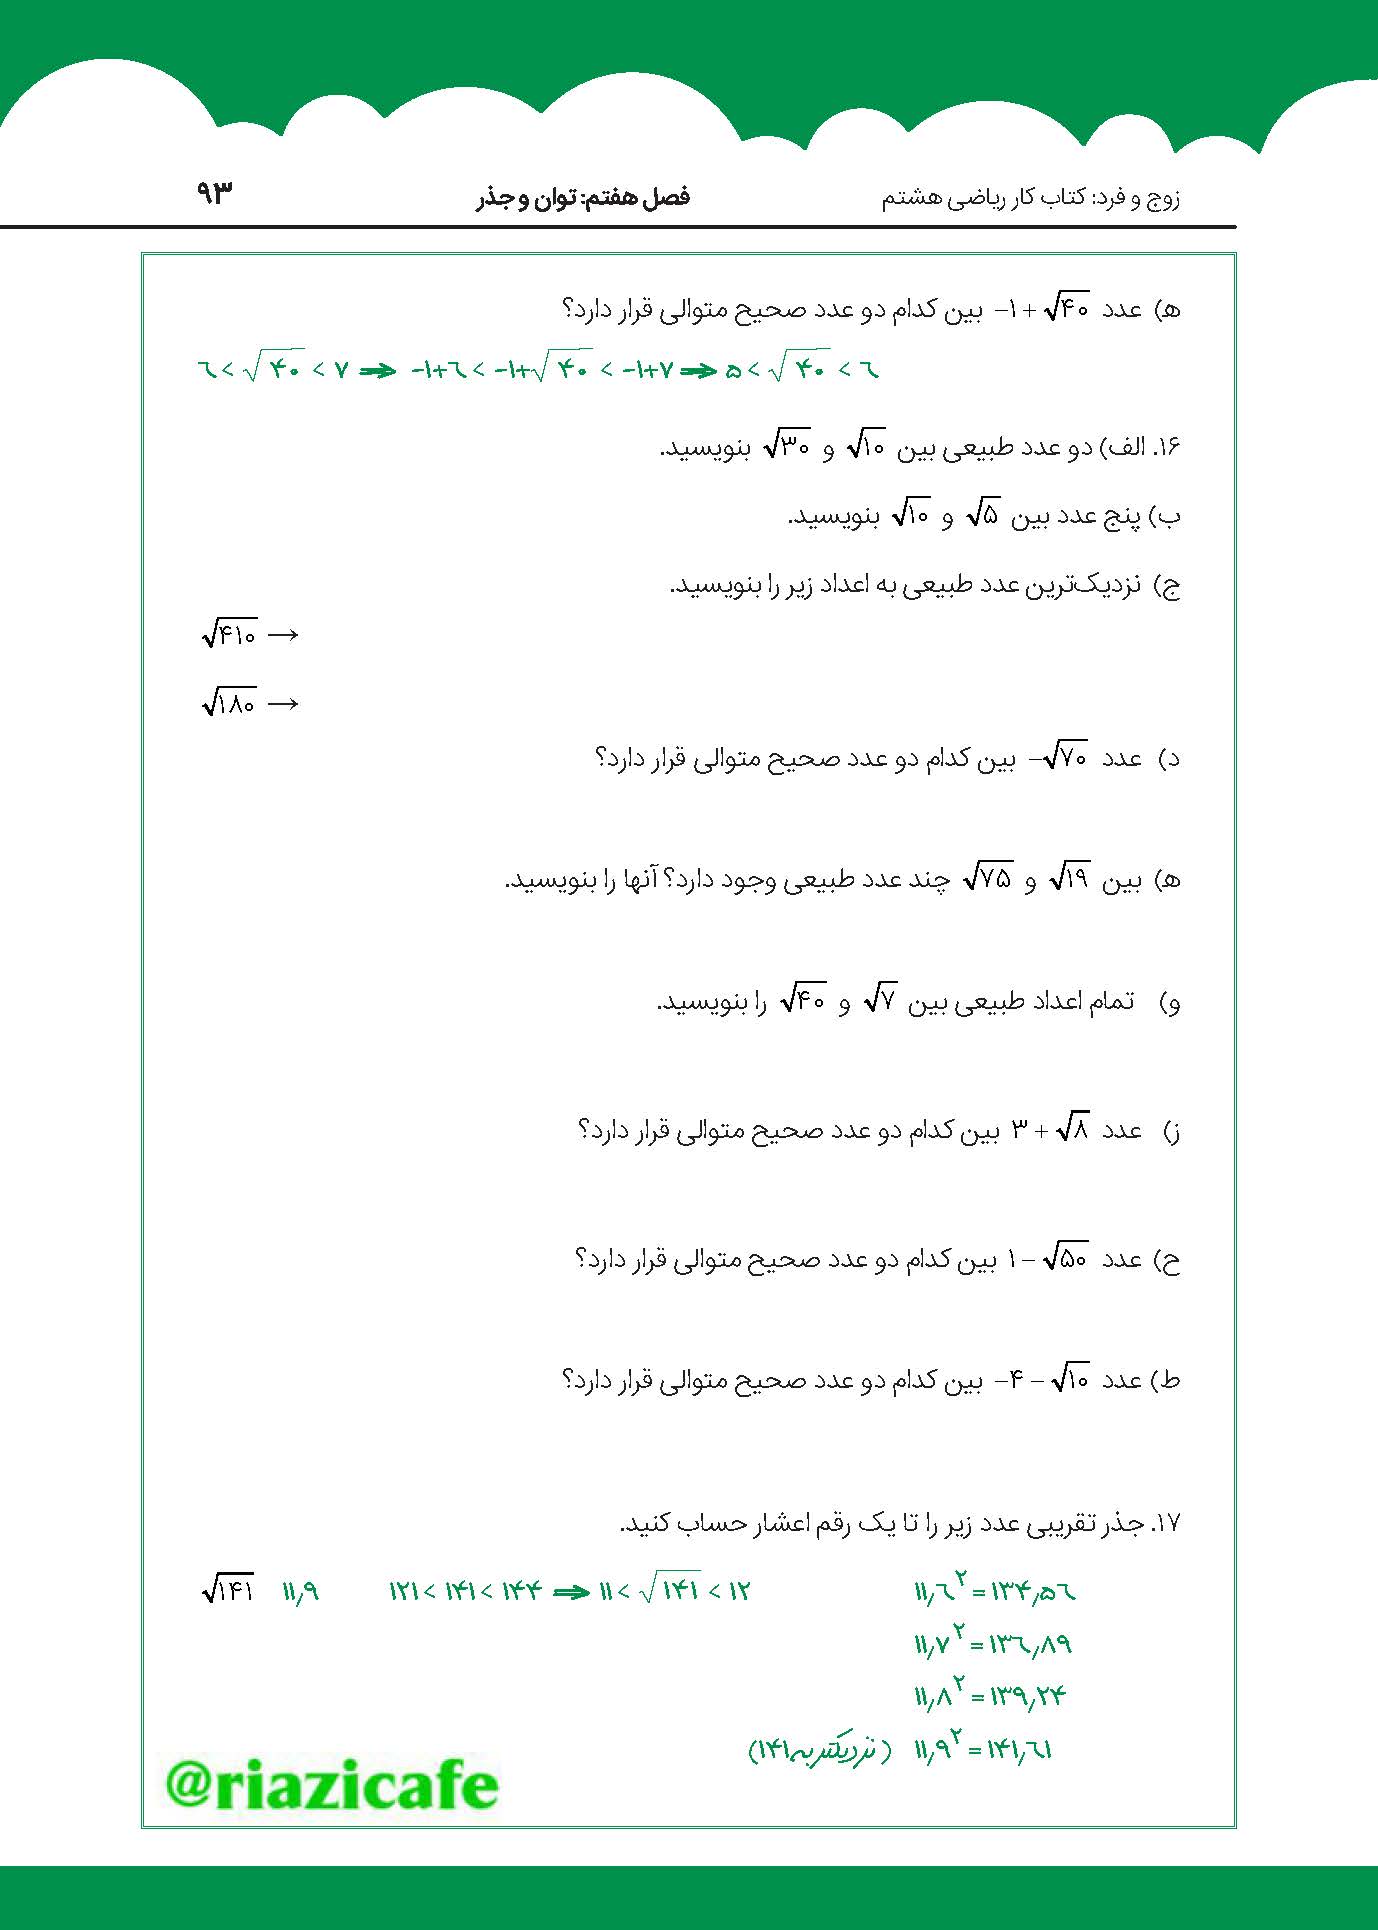 زوج و فرد: کتاب کار ریاضی هشتم فصل هفتم: توان و جذر ۹۳
ه) عدد −۱+√۴۰ بین کدام دو عدد صحیح متوالی قرار دارد؟
۶ < √۴۰ < ۷ ⟹ −۱+۶ < −۱+√۴۰ < −۱+۷ ⟹ ۵ < √۴۰ < ۶
۱۶. الف) دو عدد طبیعی بین √۱۰ و √۳۰ بنویسید.
ب) پنج عدد بین √۵ و √۱۰ بنویسید.
ج) نزدیک‌ترین عدد طبیعی به اعداد زیر را بنویسید.
√۴۱۰ →
√۱۸۰ →
د) عدد −√۷۰ بین کدام دو عدد صحیح متوالی قرار دارد؟
ه) بین √۱۹ و √۷۵ چند عدد طبیعی وجود دارد؟ آنها را بنویسید.
و) تمام اعداد طبیعی بین √۷ و √۴۰ را بنویسید.
ز) عدد ۳+√۸ بین کدام دو عدد صحیح متوالی قرار دارد؟
ح) عدد ۱−√۵۰ بین کدام دو عدد صحیح متوالی قرار دارد؟
ط) عدد −۴−√۱۰ بین کدام دو عدد صحیح متوالی قرار دارد؟
۱۷. جذر تقریبی عدد زیر را تا یک رقم اعشار حساب کنید.
√۱۴۱ ۱۱٫۹ ۱۲۱ < ۱۴۱ < ۱۴۴ ⟹ ۱۱ < √۱۴۱ < ۱۲ ۱۱٫۶² = ۱۳۴٫۵۶
۱۱٫۷² = ۱۳۶٫۸۹
۱۱٫۸² = ۱۳۹٫۲۴
۱۱٫۹² = ۱۴۱٫۶۱ (نزدیکتر به ۱۴۱)
@riazicafe